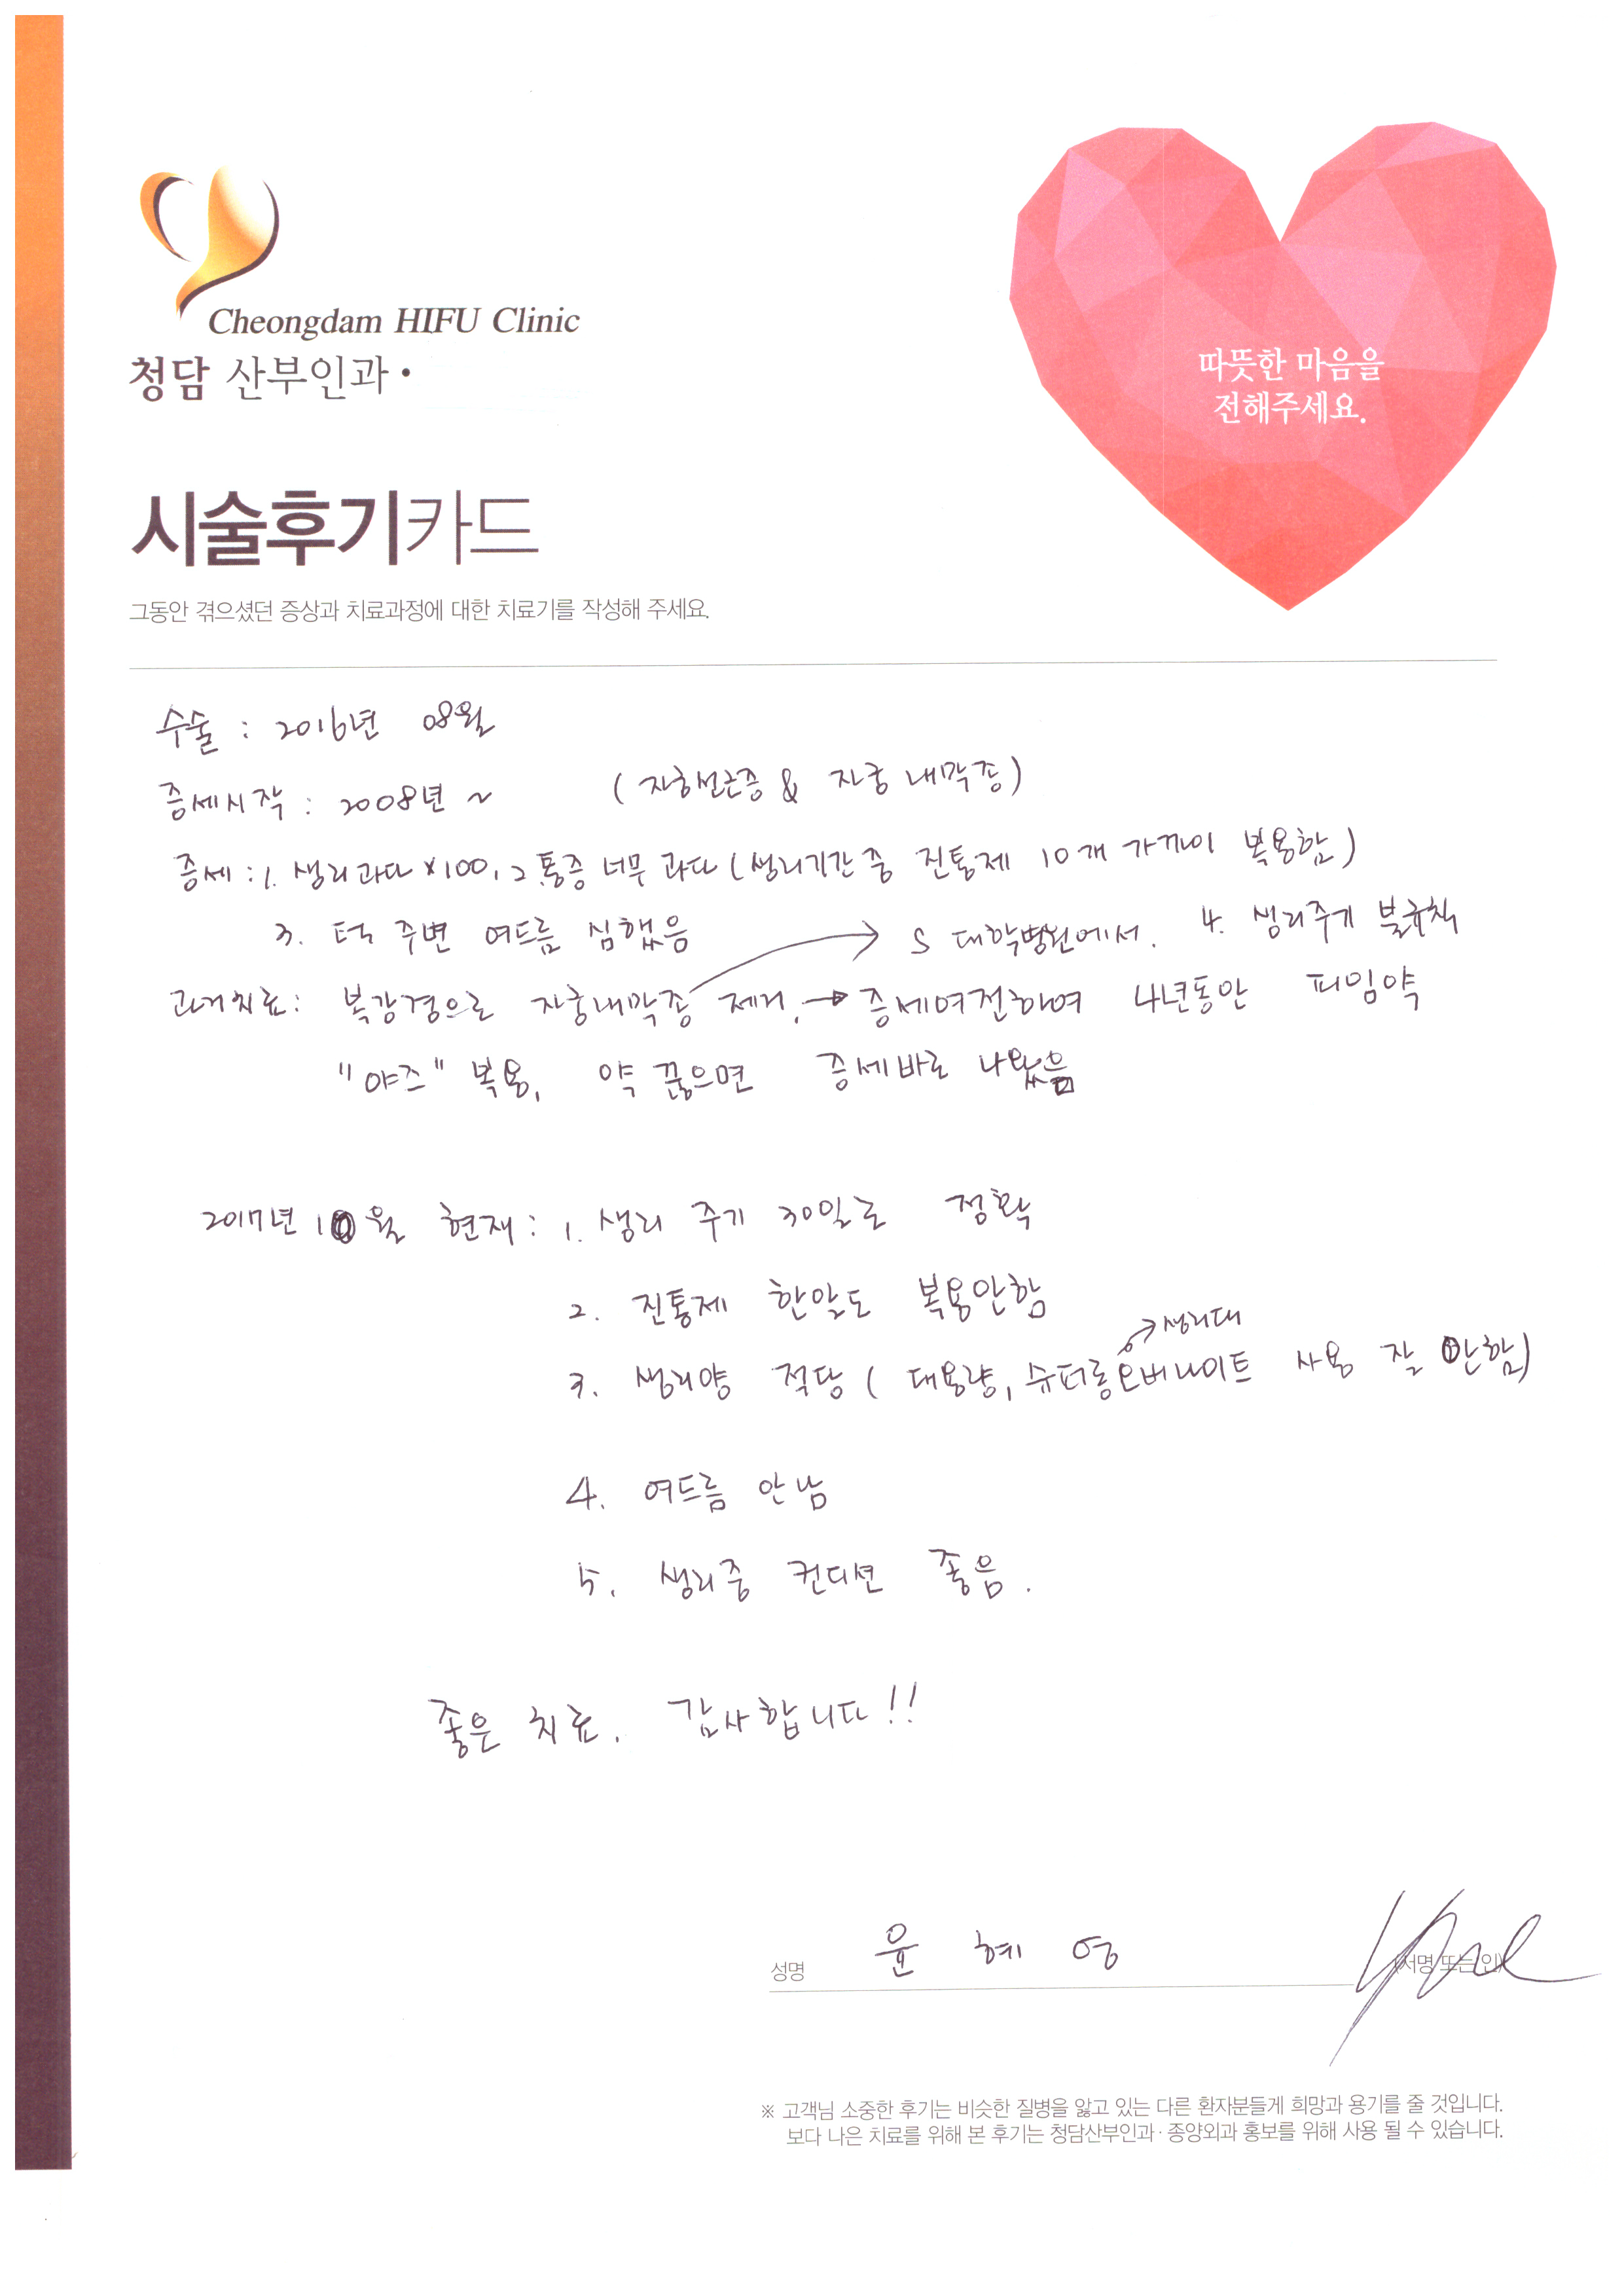 Cheongdam HIFU Clinic
청담 산부인과·
따뜻한 마음을
전해주세요.
시술후기카드
그동안 겪으셨던 증상과 치료과정에 대한 치료기를 작성해 주세요.
수술 : 2016년 08월
증세시작 : 2008년 ~ (자궁선근증 & 자궁 내막종)
증세 : 1. 생리과다 x100, 2. 통증 너무 과다 (생리기간 중 진통제 10개 가까이 복용함)
3. 턱 주변 여드름 심했음 → S 대학병원에서. 4. 생리주기 불규칙
과거치료 : 복강경으로 자궁내막종 제거. → 증세여전하여 4년동안 피임약
"야즈" 복용, 약 끊으면 증세바로 나왔음
2017년 10월 현재 : 1. 생리 주기 30일로 정확
2. 진통제 한알도 복용안함
→ 생리대
3. 생리양 적당 ( 대용량, 슈퍼롱오버나이트 사용 잘 안함)
4. 여드름 안남
5. 생리중 컨디션 좋음.
좋은 치료. 감사합니다!!
성명 윤 혜 영 (서명 또는 인)
※ 고객님 소중한 후기는 비슷한 질병을 앓고 있는 다른 환자분들게 희망과 용기를 줄 것입니다.
보다 나은 치료를 위해 본 후기는 청담산부인과·종양외과 홍보를 위해 사용 될 수 있습니다.